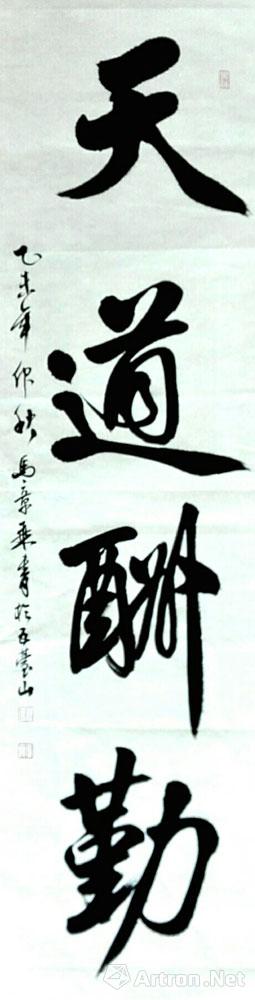 天道酬勤
乙未年仲秋馬景乘書於五臺山
Artron.Net